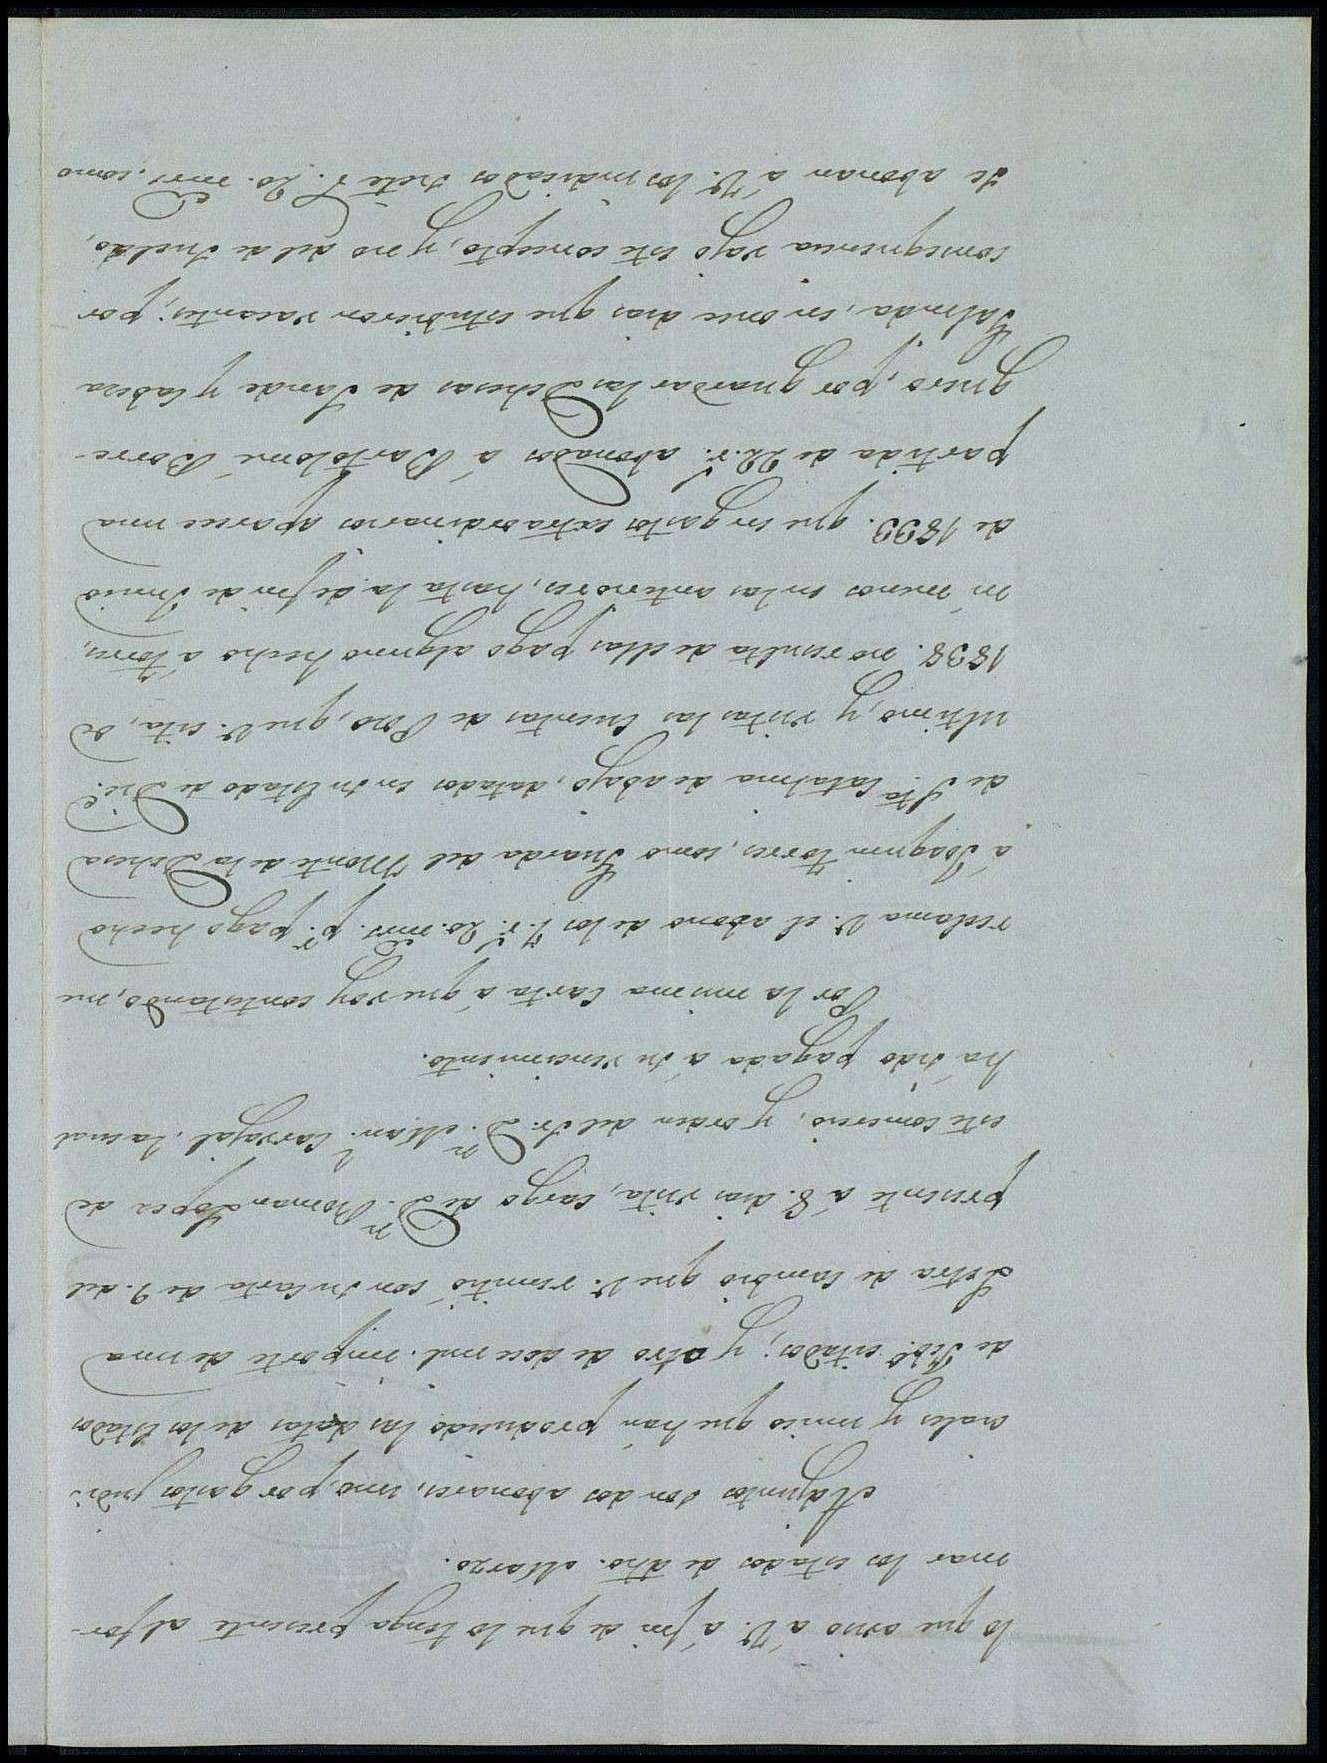 lo que aviso á V. á fin de que lo tenga presente al for-
mar los estados de dho. Marzo.
Adjuntos son dos abonarés, uno, por gastos judi-
ciales y unico que han producido las datas de los Estados
de Feb.º citados; y otro de doce mil. importe de una
Letra de Cambio que V. remitió con su Carta de 9. del
presente á 8. dias vista, cargo de D.n Roman Lopez de
este comercio, y orden del Sr. D.n Man.l Carvajal. La cual
há sido pagada á su vencimiento.
Por la misma Carta á que voy contestando, me
reclama V. el abono de los 7. r.s 20. mrs. p.r pago hecho
á Joaquin Torres, como Guarda del Monte de la Dehesa
de S.ta Catalina de abajo, datados en su Estado de Dic.e
ultimo, y vistas las Cuentas de Oso, que V. cita, de
1838. no resulta de ellas pago alguno hecho á Torres,
ni menos en las anteriores, hasta la de fin de Junio
de 1833. que en gastos extraordinarios aparece una
partida de 22. r.s abonados á Bartolomé Borre-
guero, por guardar las Dehesas de Sande y Cabeza
Galinda, en once dias que estubieron vacantes; por
consiguiente vajo este concepto, y no del de Sueldo,
se abonan á V. los indicados siete r.s 20. mrs, como